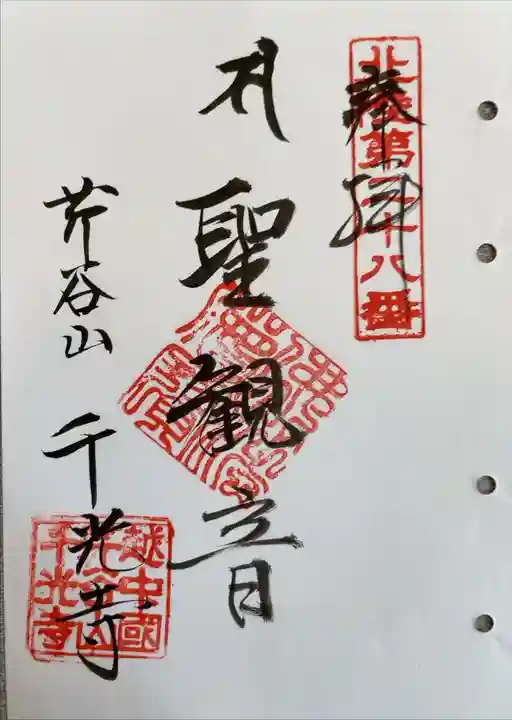 奉拝
北陸第二十八番
聖観音
芹谷山 千光寺
越中國
芹谷山
千光寺